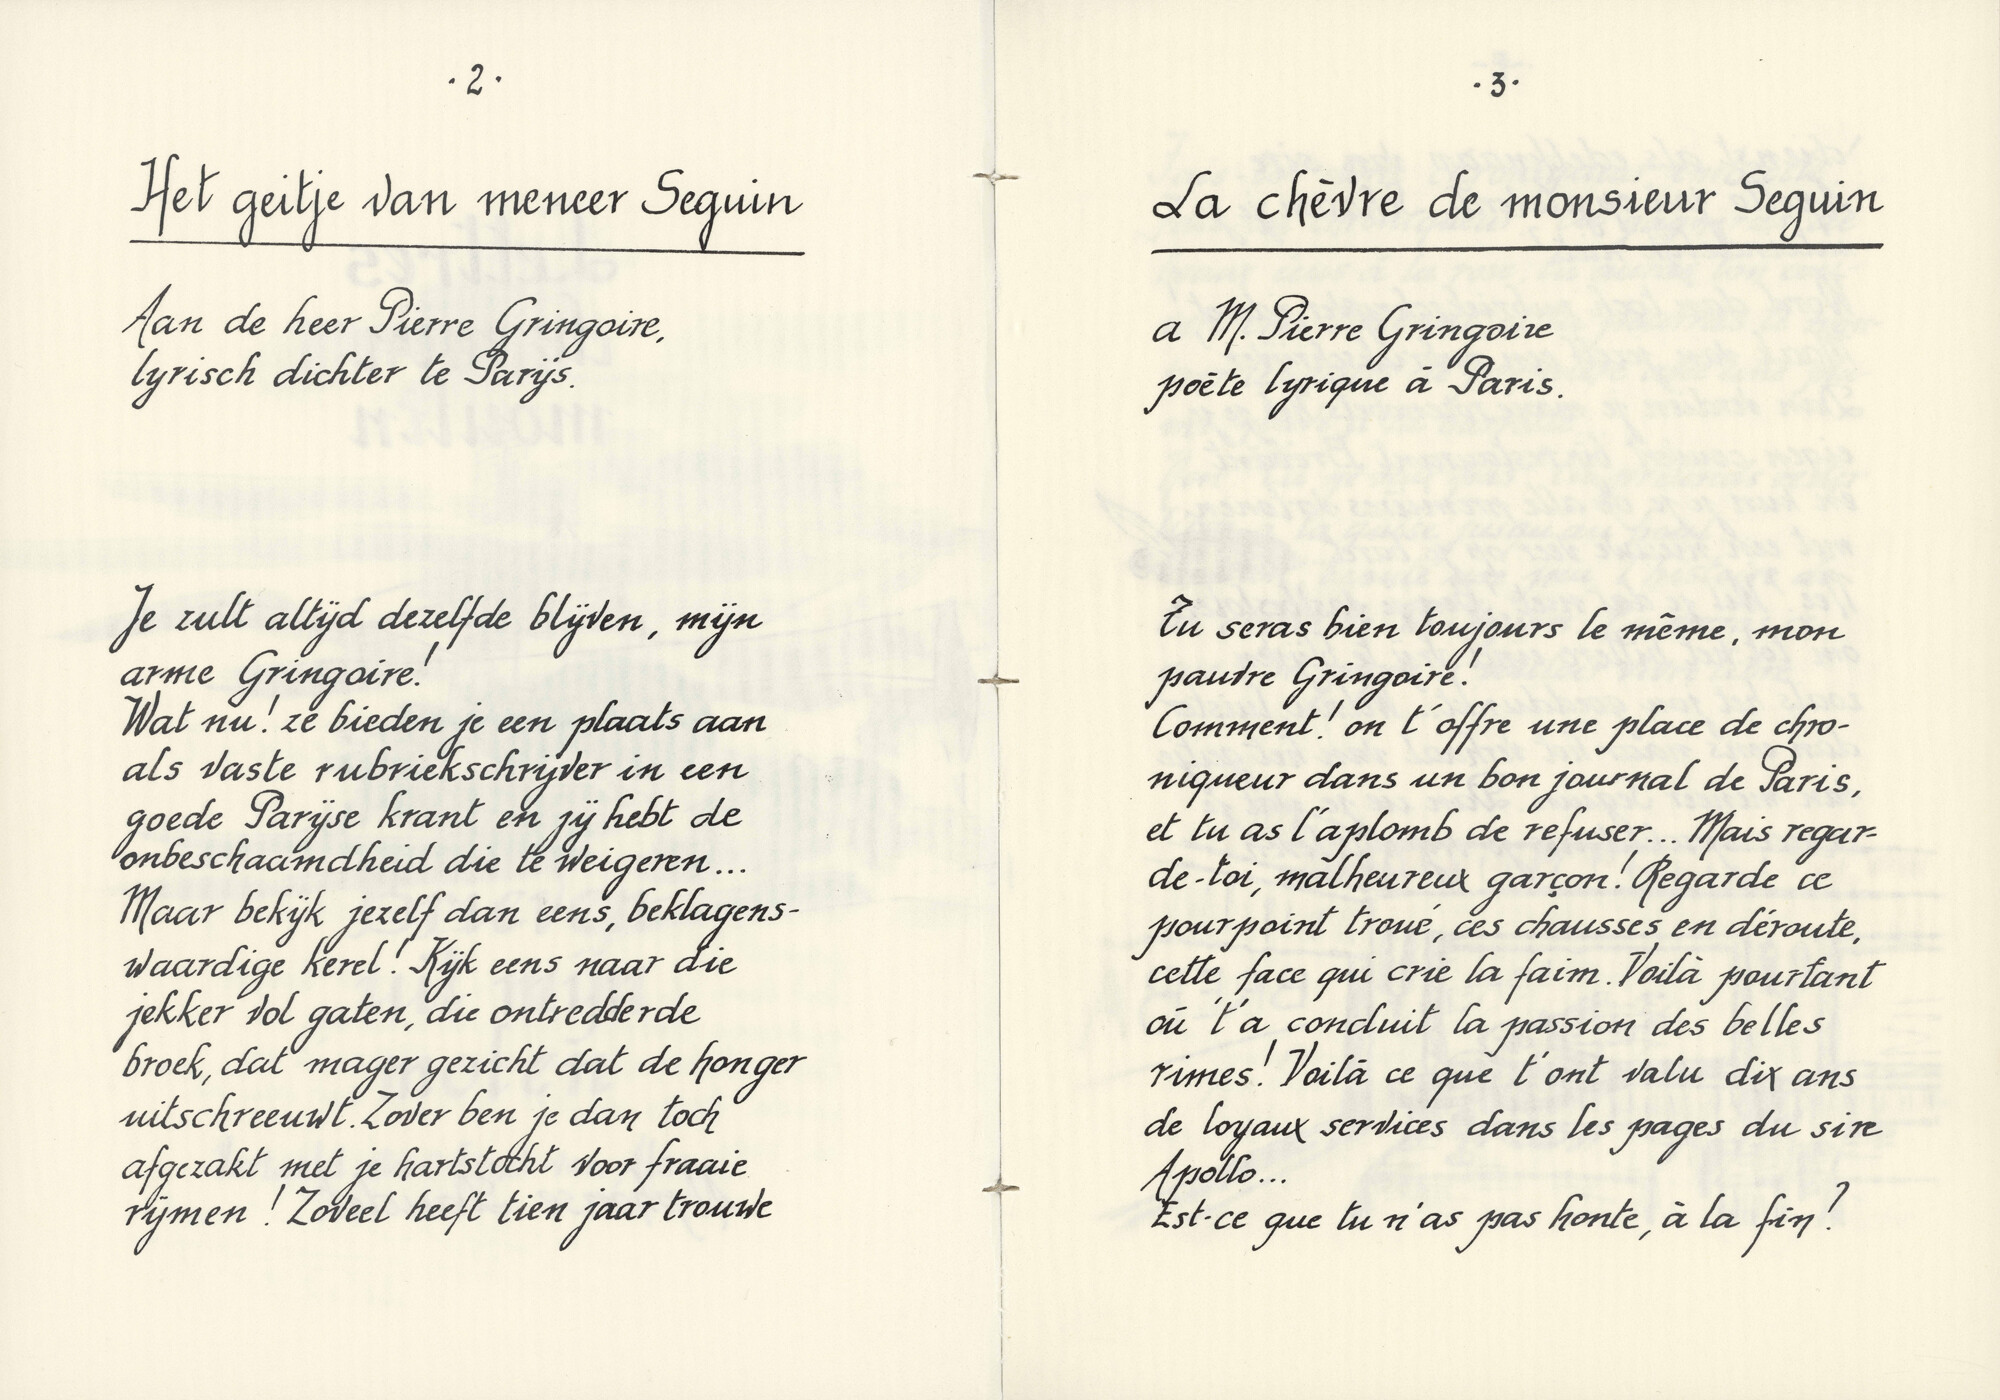 · 2 ·
Het geitje van meneer Seguin
Aan de heer Pierre Gringoire,
lyrisch dichter te Parijs.
Je zult altijd dezelfde blijven, mijn
arme Gringoire!
Wat nu! ze bieden je een plaats aan
als vaste rubriekschrijver in een
goede Parijse krant en jij hebt de
onbeschaamdheid die te weigeren...
Maar bekijk jezelf dan eens, beklagens-
waardige kerel! Kijk eens naar die
jekker vol gaten, die ontredderde
broek, dat mager gezicht dat de honger
uitschreeuwt. Zover ben je dan toch
afgezakt met je hartstocht voor fraaie
rijmen! Zoveel heeft tien jaar trouwe
· 3 ·
La chèvre de monsieur Seguin
a M. Pierre Gringoire
poète lyrique à Paris.
Tu seras bien toujours le même, mon
pauvre Gringoire!
Comment! on t'offre une place de chro-
niqueur dans un bon journal de Paris,
et tu as l'aplomb de refuser... Mais regar-
de-toi, malheureux garçon! Regarde ce
pourpoint troué, ces chausses en déroute,
cette face qui crie la faim. Voilà pourtant
où t'a conduit la passion des belles
rimes! Voilà ce que t'ont valu dix ans
de loyaux services dans les pages du sire
Apollo...
Est-ce que tu n'as pas honte, à la fin?